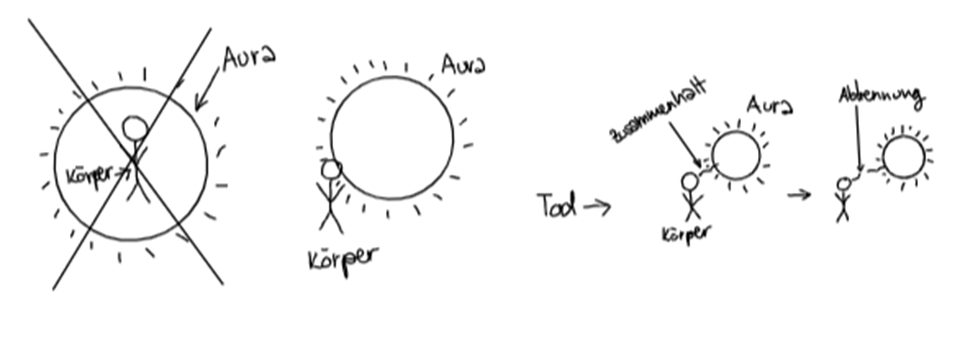 Aura
Körper
Aura
Körper
Tod
Zusammenhalt
Aura
Körper
Abtrennung